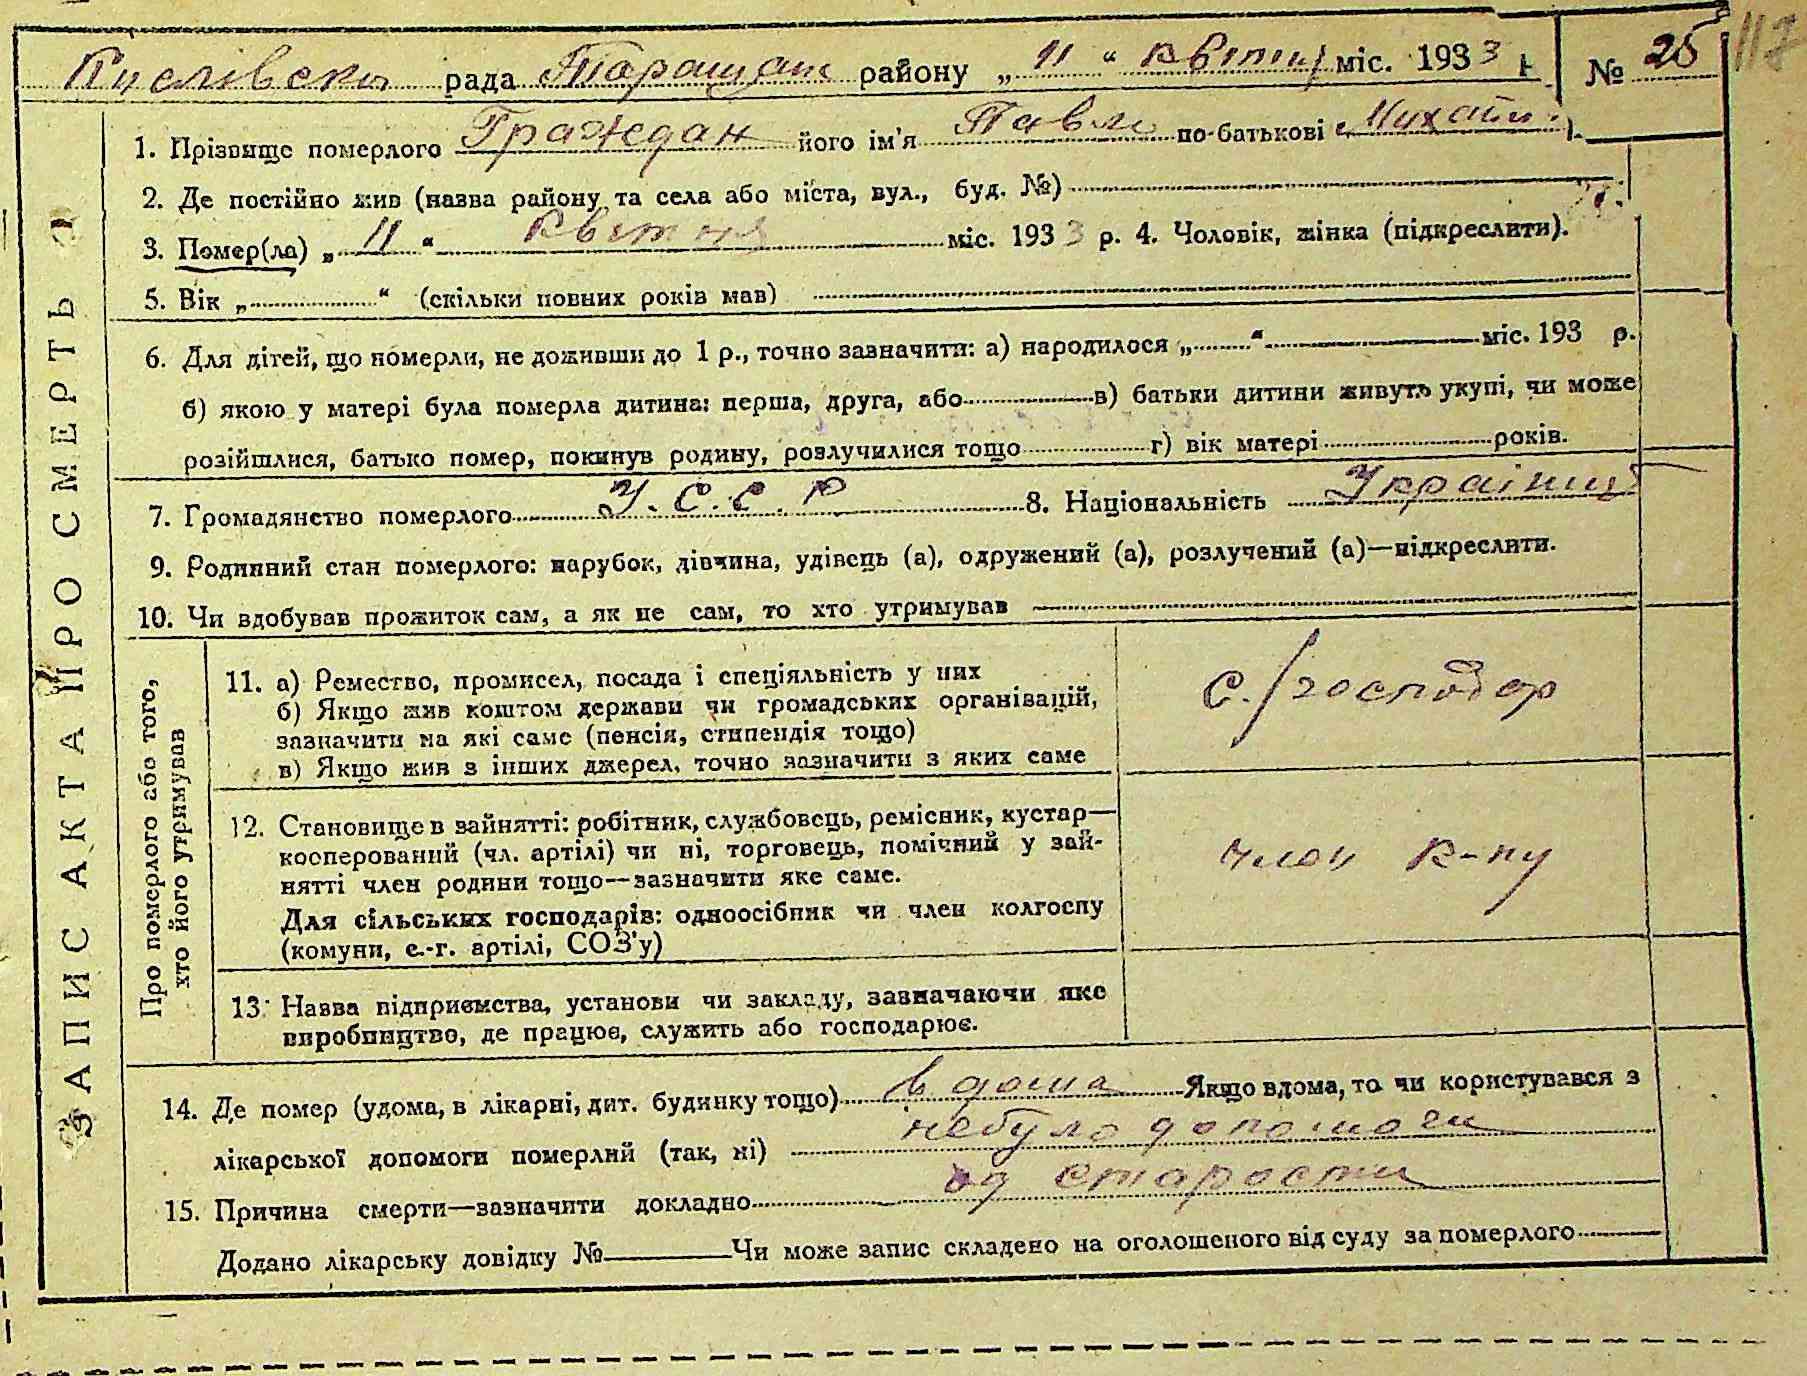 Кислівська рада Таращан району „11“ квітня міс. 1933 р № 25 117
ЗАПИС АКТА ПРО СМЕРТЬ
1. Прізвище померлого Граждан його ім'я Павло по-батькові Михайл.
2. Де постійно жив (назва району та села або міста, вул., буд. №)
3. Помер(ла) „11“ Квітня міс. 1933 р. 4. Чоловік, жінка (підкреслити).
5. Вік „ “ (скільки повних років мав)
6. Для дітей, що померли, не доживши до 1 р., точно зазначити: а) народилося „ “ міс. 193 р.
б) якою у матері була померла дитина: перша, друга, або в) батьки дитини живуть укупі, чи може
розійшлися, батько помер, покинув родину, розлучилися тощо г) вік матері років.
7. Громадянство померлого У.С.С.Р 8. Національність Українец
9. Родинний стан померлого: парубок, дівчина, удівець (а), одружений (а), розлучений (а)—підкреслити.
10. Чи вдобував прожиток сам, а як не сам, то хто утримував
Про померлого або того,
хто його утримував
11. а) Ремество, промисел, посада і спеціяльність у них
б) Якщо жив коштом держави чи громадських організацій,
зазначити на які саме (пенсія, стипендія тощо)
в) Якщо жив з інших джерел, точно зазначити з яких саме
с./господар
12. Становище в зайнятті: робітник, службовець, ремісник, кустар—
кооперований (чл. артілі) чи ні, торговець, помічний у зай-
нятті член родини тощо—зазначити яке саме.
Для сільських господарів: одноосібник чи член колгоспу
(комуни, с.-г. артілі, СОЗ'у)
член к-пу
13. Назва підприємства, установи чи закладу, зазначаючи яке
виробництво, де працює, служить або господарює.
14. Де помер (удома, в лікарні, дит. будинку тощо) в дома Якщо вдома, то чи користувався з
лікарської допомоги померлий (так, ні) небуло допомоги
15. Причина смерти—зазначити докладно од старости
Додано лікарську довідку № Чи може запис складено на оголошеного від суду за померлого